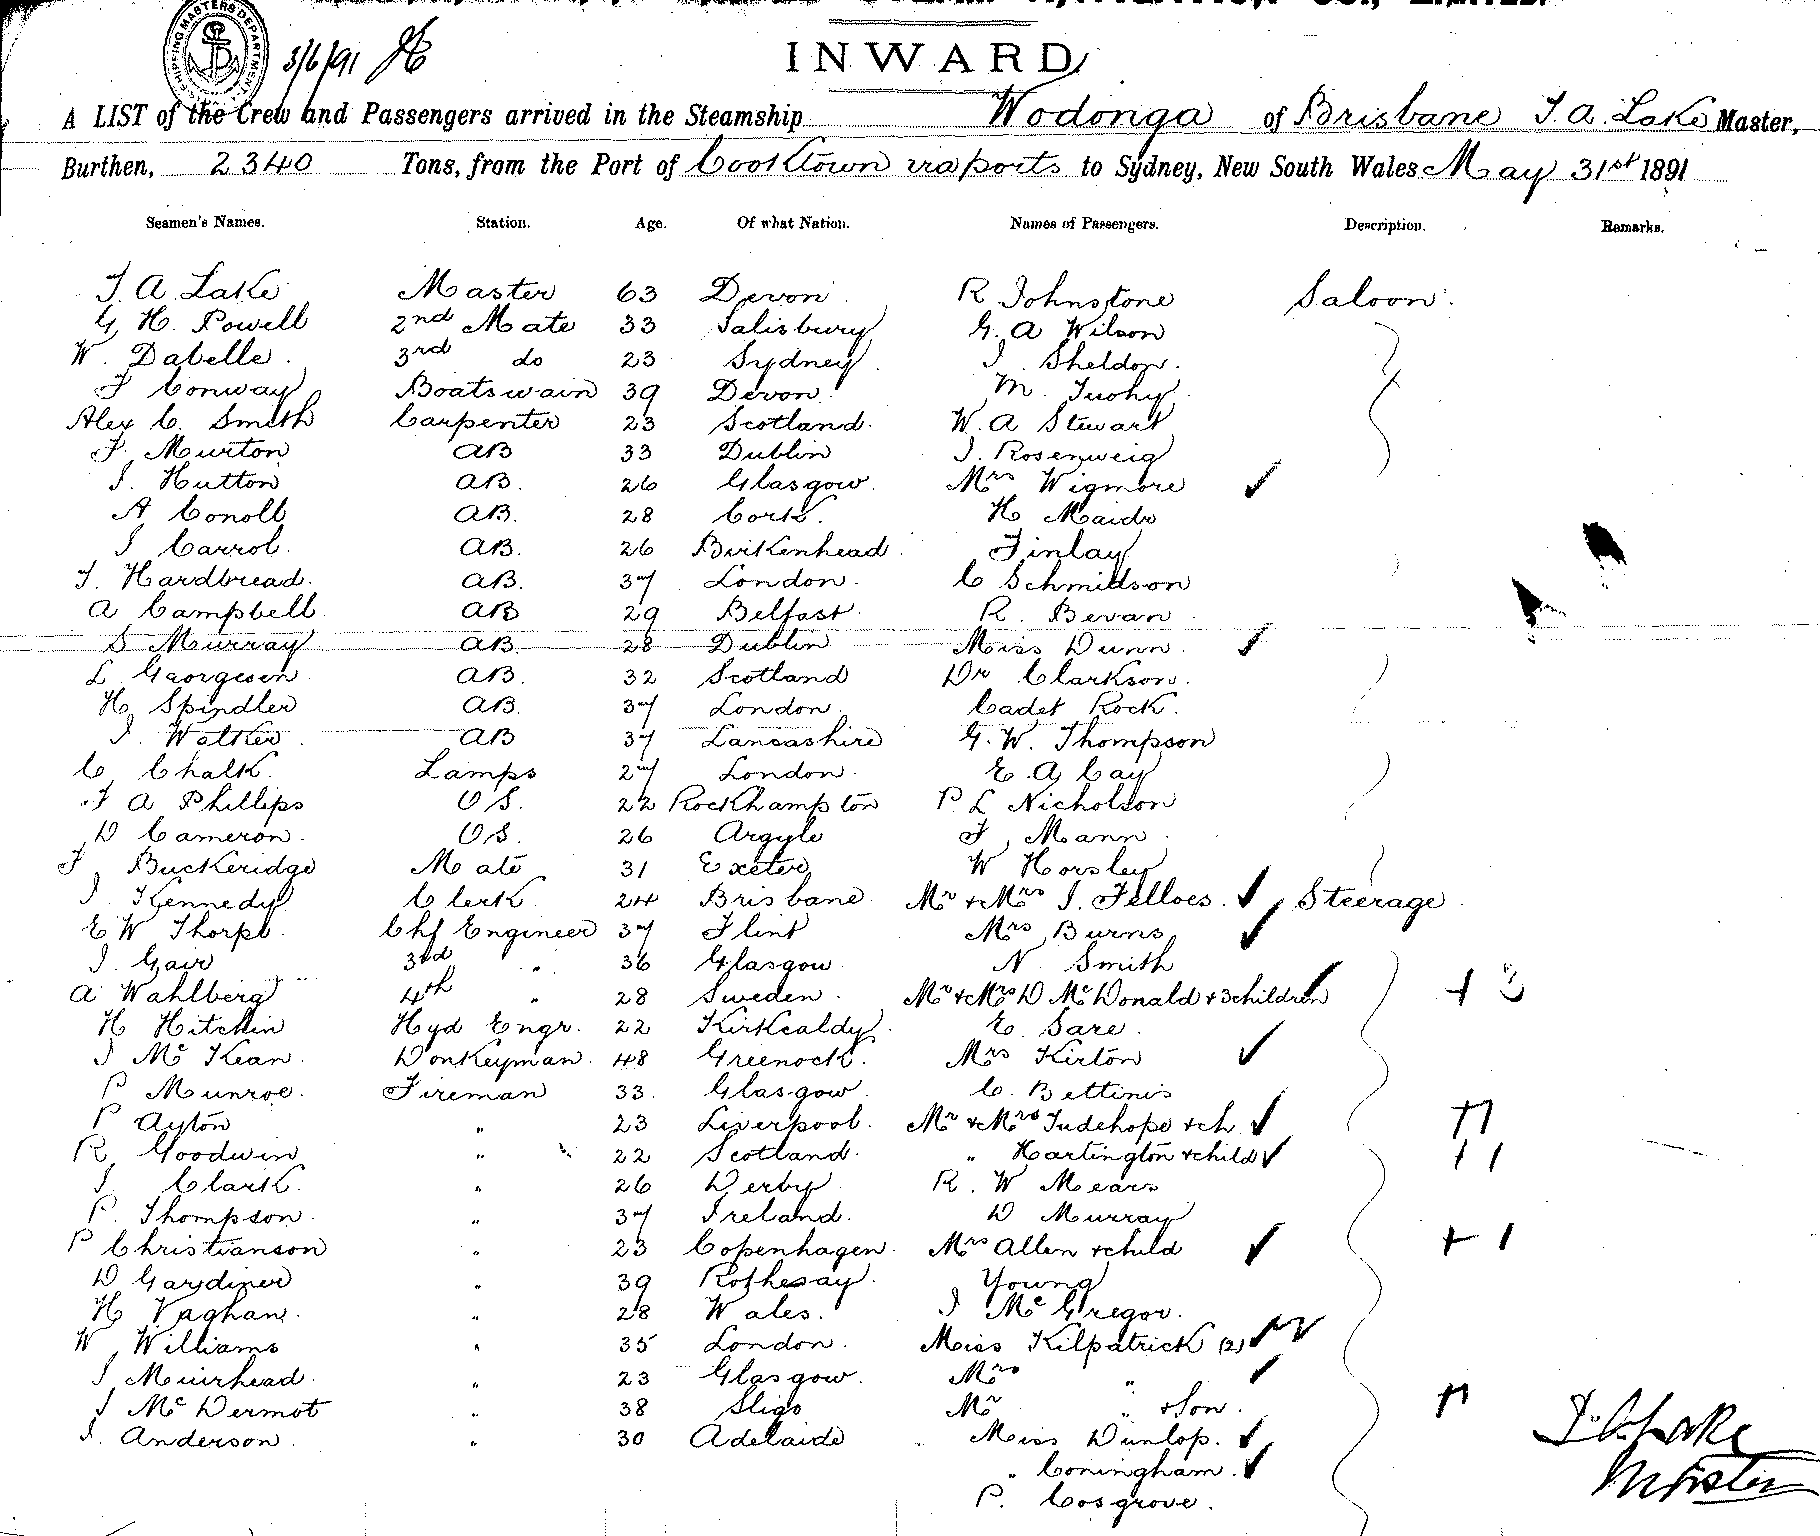 SHIPPING MASTERS DEPARTMENT
3/6/91
INWARD
A LIST of the Crew and Passengers arrived in the Steamship Wodonga of Brisbane T. A. Lake Master,
Burthen, 2340 Tons, from the Port of Cooktown via ports to Sydney, New South Wales May 31st 1891
Seamen's Names. Station. Age. Of what Nation. Names of Passengers. Description. Remarks.
T. A Lake Master 63 Devon R Johnstone Saloon.
G, H. Powell 2nd Mate 33 Salisbury G. A Wilson
W. Dabelle. 3rd do 23 Sydney J. Sheldon.
J Conway Boatswain 39 Devon. M. Tuohy
Alex C. Smith Carpenter 23 Scotland. W. A Stewart
F. Murton AB 33 Dublin J. Rosenweig
J. Hutton AB. 26 Glasgow. Mrs Wigmore
A Conoll AB. 28 Cork. H Maids
J Carrol. AB. 26 Birkenhead. Finlay
T. Hardbread. AB. 37 London. C Schmidson
A Campbell AB 29 Belfast. R. Bevan
S Murray AB. 28 Dublin Miss Dunn.
L Georgeson AB. 32 Scotland Dr Clarkson.
H. Spindler AB. 37 London. Cadet Rock.
J. Walker AB 37 Lancashire G. W. Thompson
C. Chalk. Lamps 27 London. E. A Cay
F A Phillips O S. 22 Rockhampton P. L Nicholson
D Cameron. O S. 26 Argyle F, Mann
F, Buckeridge Mate 31 Exeter W Horsley
J. Kennedy Clerk 24 Brisbane Mr & Mrs J. Felloes. Steerage
E W Thorpe. Chf Engineer 37 Flint Mrs Burns
J. Gair 3rd " 36 Glasgow N Smith
A Wahlberg 4th " 28 Sweden. Mr & Mrs D McDonald & 3 children + 3
H Hitchin Hyd Engr. 22 Kirkcaldy E. Sare.
J McKean. Donkeyman. 48 Greenock. Mrs Kirton
P Munroe. Fireman 33. Glasgow C. Bettinis
P Ayton " 23 Liverpool. Mr & Mrs Tudehope & ch
R, Goodwin " 22 Scotland. " Hartington & child
J. Clark. " 26 Derby R. W Mears
P. Thompson. " 37 Ireland. D Murray
P Christianson " 23 Copenhagen. Mrs Allen & child + 1
D Gardiner " 39 Rothesay. Young
H Vaghan. " 28 Wales. J McGregor.
W, Williams " 35 London. Miss Kilpatrick (2)
J Muirhead. " 23 Glasgow. Mrs "
J McDermot " 38 Sligo Mr " & Son.
J. Anderson. " 30 Adelaide Miss Dunlop.
" Coningham.
P. Cosgrove.
T. A. Lake
Master